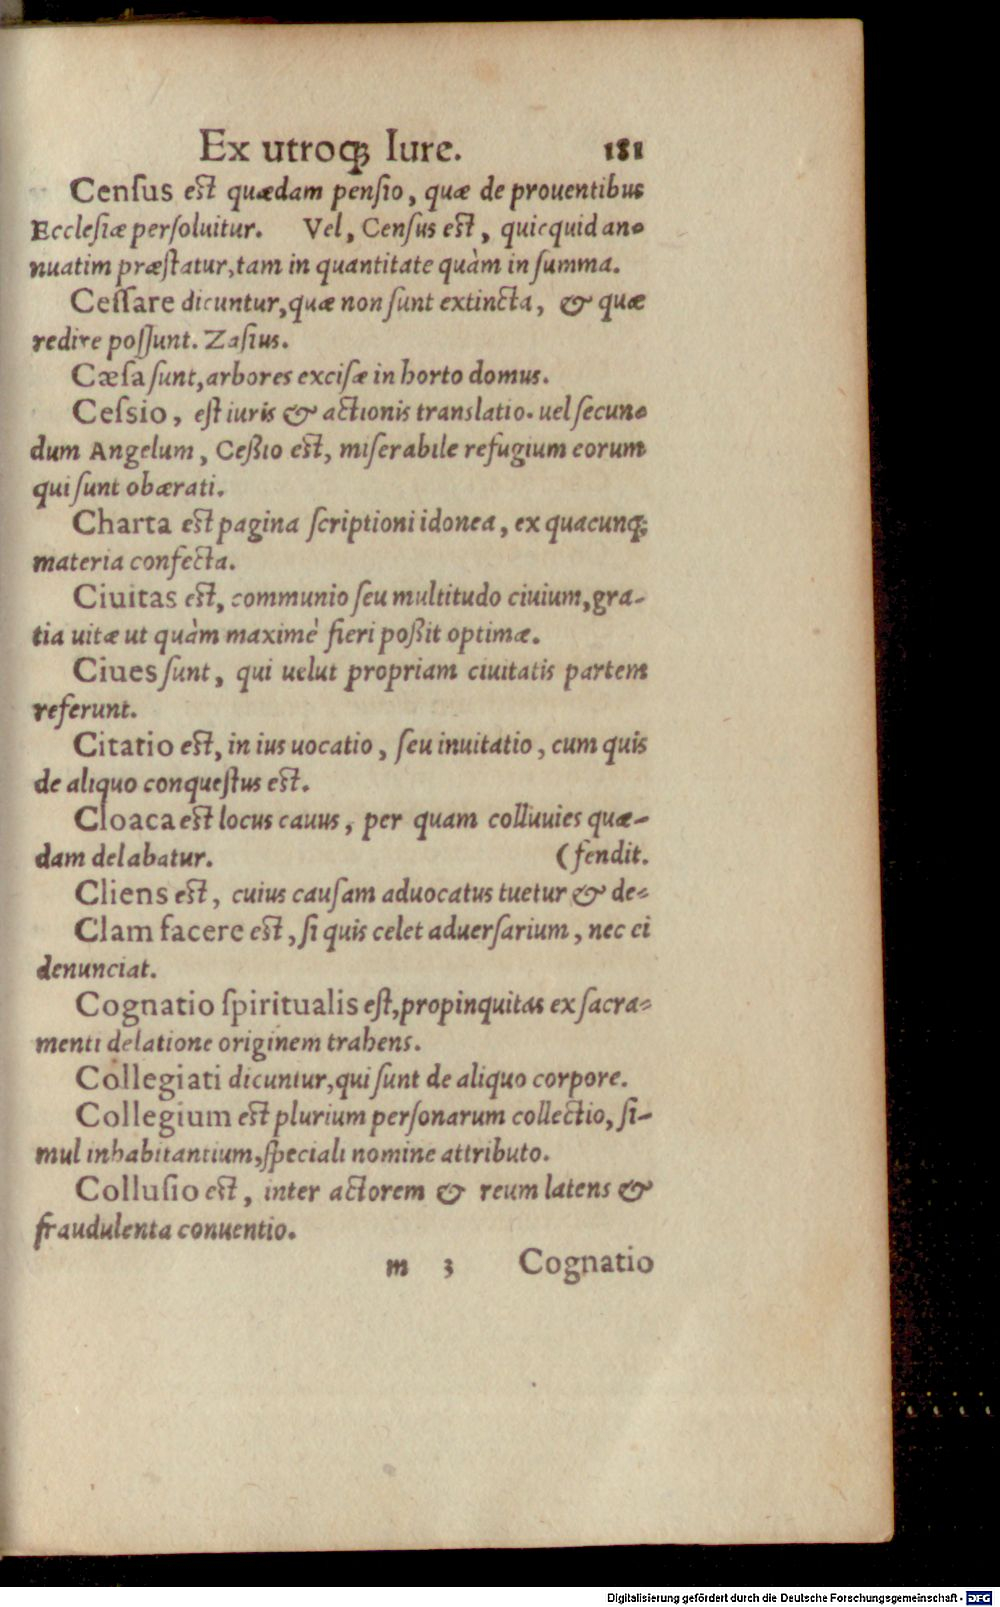 Ex utroq; Iure. 181
Cenſus eſt quædam penſio, quæ de prouentibus
Eccleſiæ perſoluitur. Vel, Cenſus eſt, quicquid an-
nuatim præſtatur, tam in quantitate quàm in ſumma.
Ceſſare dicuntur, quæ non ſunt extincta, & quæ
redire poſſunt. Zaſius.
Cæſa ſunt, arbores exciſæ in horto domus.
Ceſsio, eſt iuris & actionis translatio. uel ſecun-
dum Angelum, Ceßio eſt, miſerabile refugium eorum
qui ſunt obærati.
Charta eſt pagina ſcriptioni idonea, ex quacunq;
materia confecta.
Ciuitas eſt, communio ſeu multitudo ciuium, gra-
tia uitæ ut quàm maximè fieri poßit optimæ.
Ciues ſunt, qui uelut propriam ciuitatis partem
referunt.
Citatio eſt, in ius uocatio, ſeu inuitatio, cum quis
de aliquo conqueſtus eſt.
Cloaca eſt locus cauus, per quam colluuies quæ-
dam delabatur. (fendit.
Cliens eſt, cuius cauſam aduocatus tuetur & de-
Clam facere eſt, ſi quis celet aduerſarium, nec ei
denunciat.
Cognatio ſpiritualis eſt, propinquitas ex ſacra-
menti delatione originem trahens.
Collegiati dicuntur, qui ſunt de aliquo corpore.
Collegium eſt plurium perſonarum collectio, ſi-
mul inhabitantium, ſpeciali nomine attributo.
Colluſio eſt, inter actorem & reum latens &
fraudulenta conuentio.
m 3 Cognatio
Digitalisierung gefördert durch die Deutsche Forschungsgemeinschaft - DFG